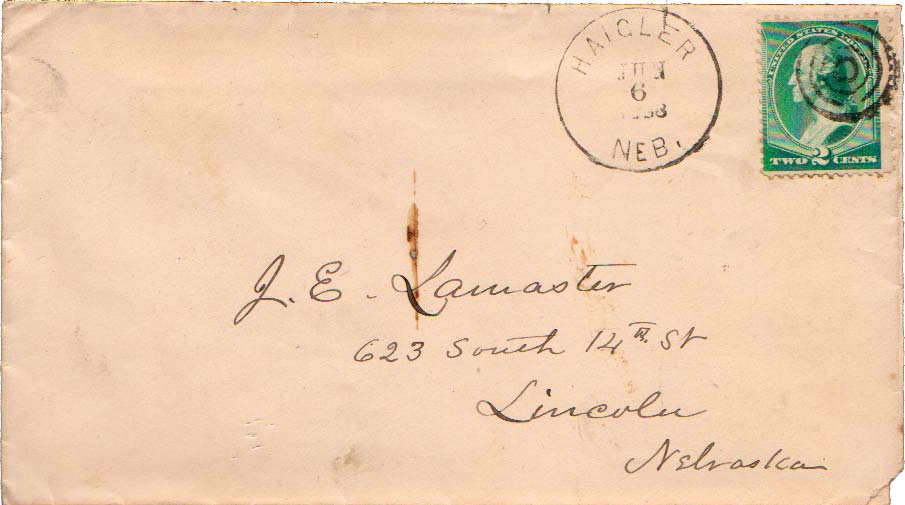 HAIGLER
JUN
6
1888
NEB.
UNITED STATES
TWO 2 CENTS
J. E. Lamaster
623 South 14th St
Lincoln
Nebraska